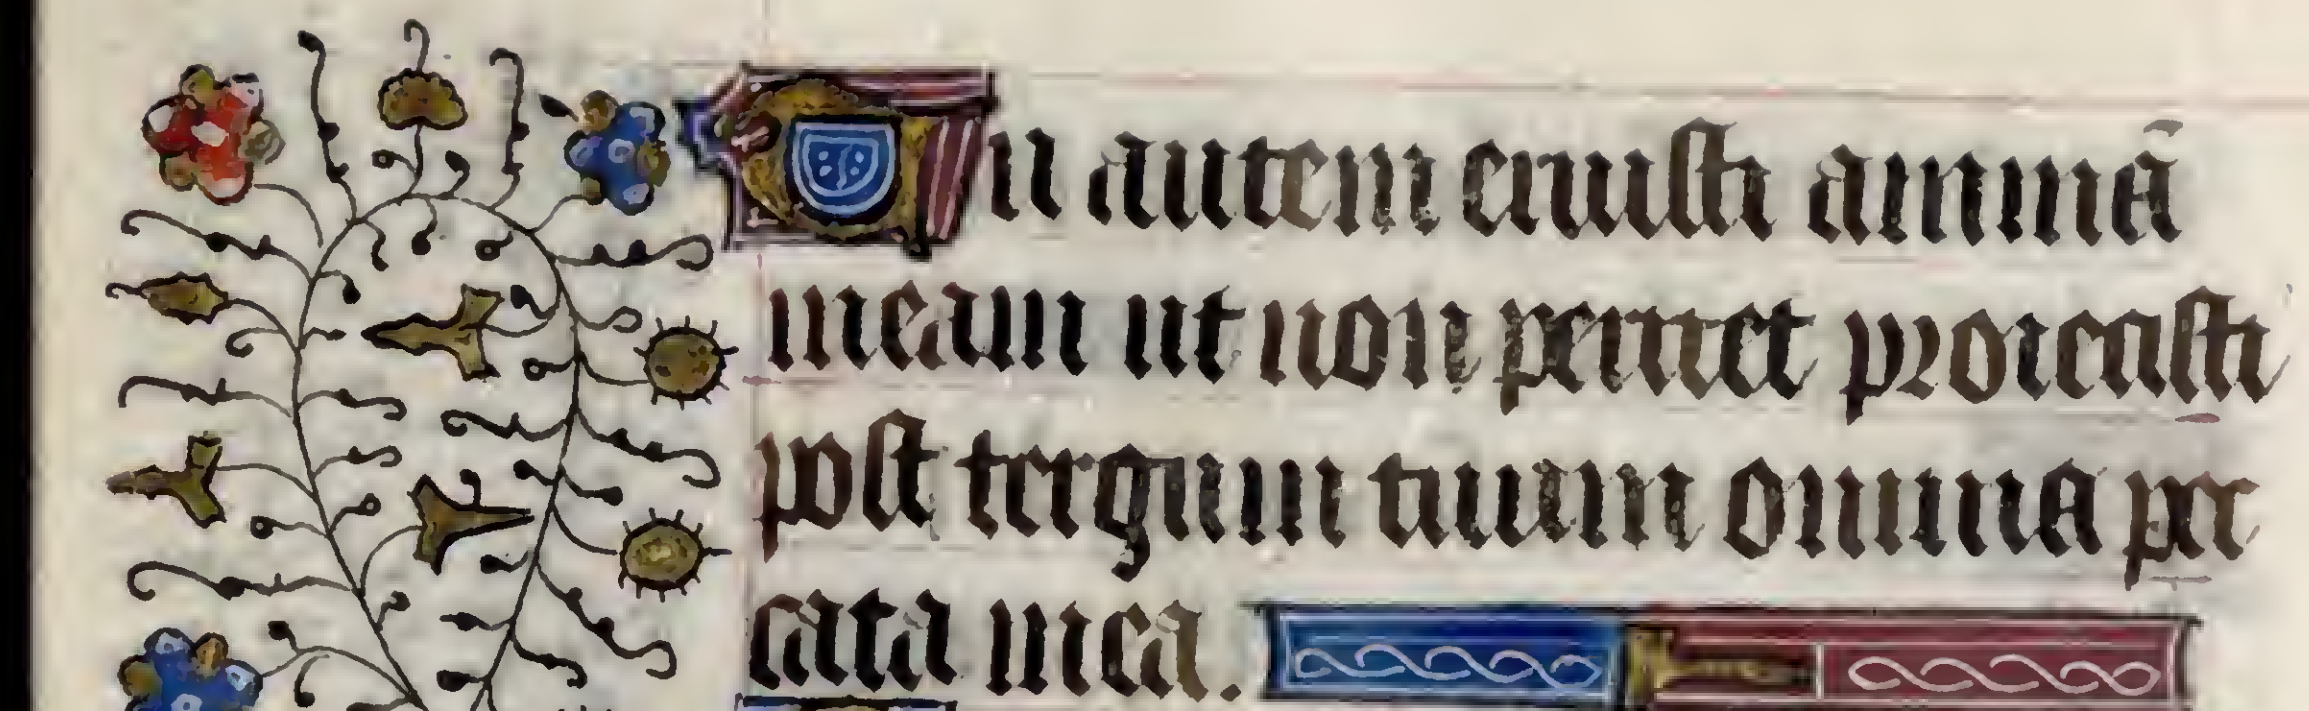 Tu autem eruisti animā
meam ut non periret proiecisti
post tergum tuum omnia pec
cata mea.